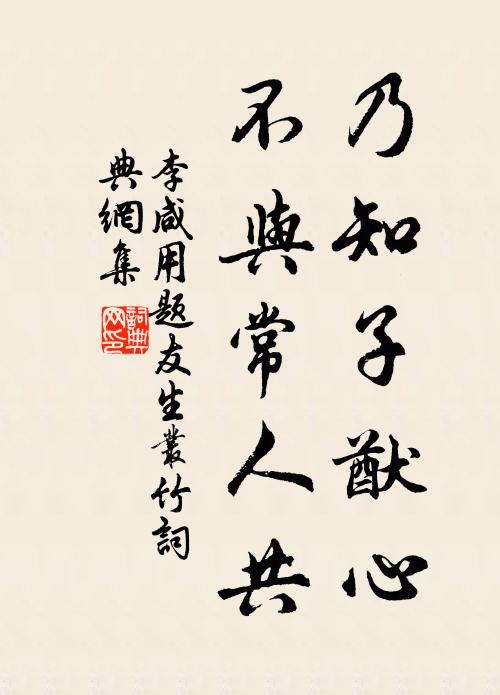 乃知子猷心
不與常人共
李咸用題友生叢竹詞
典網集
詞典
网印